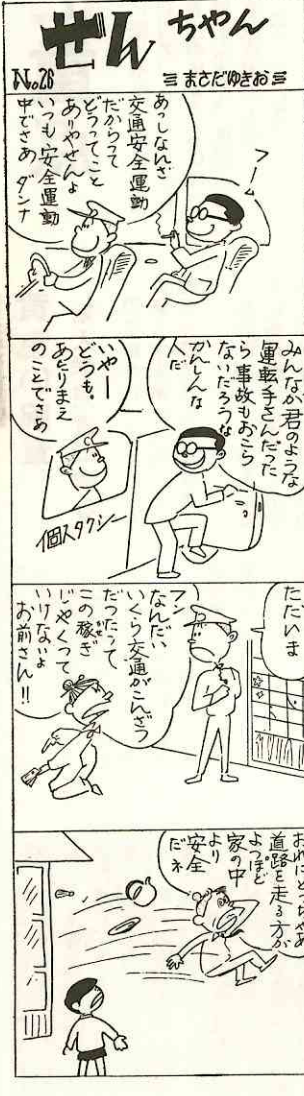 ぜんちゃん
No.28
≡まさだゆきお≡
あっしなんざ
交通安全運動
だからって
どうってこと
ありやせんよ
いつも安全運動
中でさあ ダンナ
フー
みんなが君のような
運転手さんだった
ら事故もおこら
ないだろうな
かんしんな
人だ
いやー
どうも。
あたりまえ
のことでさあ
個人タクシー
ただいま
フン
なんだい
いくら交通がこんざつ
だったって
この稼ぎ
じゃくって
いけないよ
お前さん!!
おれにとっちゃあ
道路を走る方が
よっぽど
家の中
より
安全
だネ